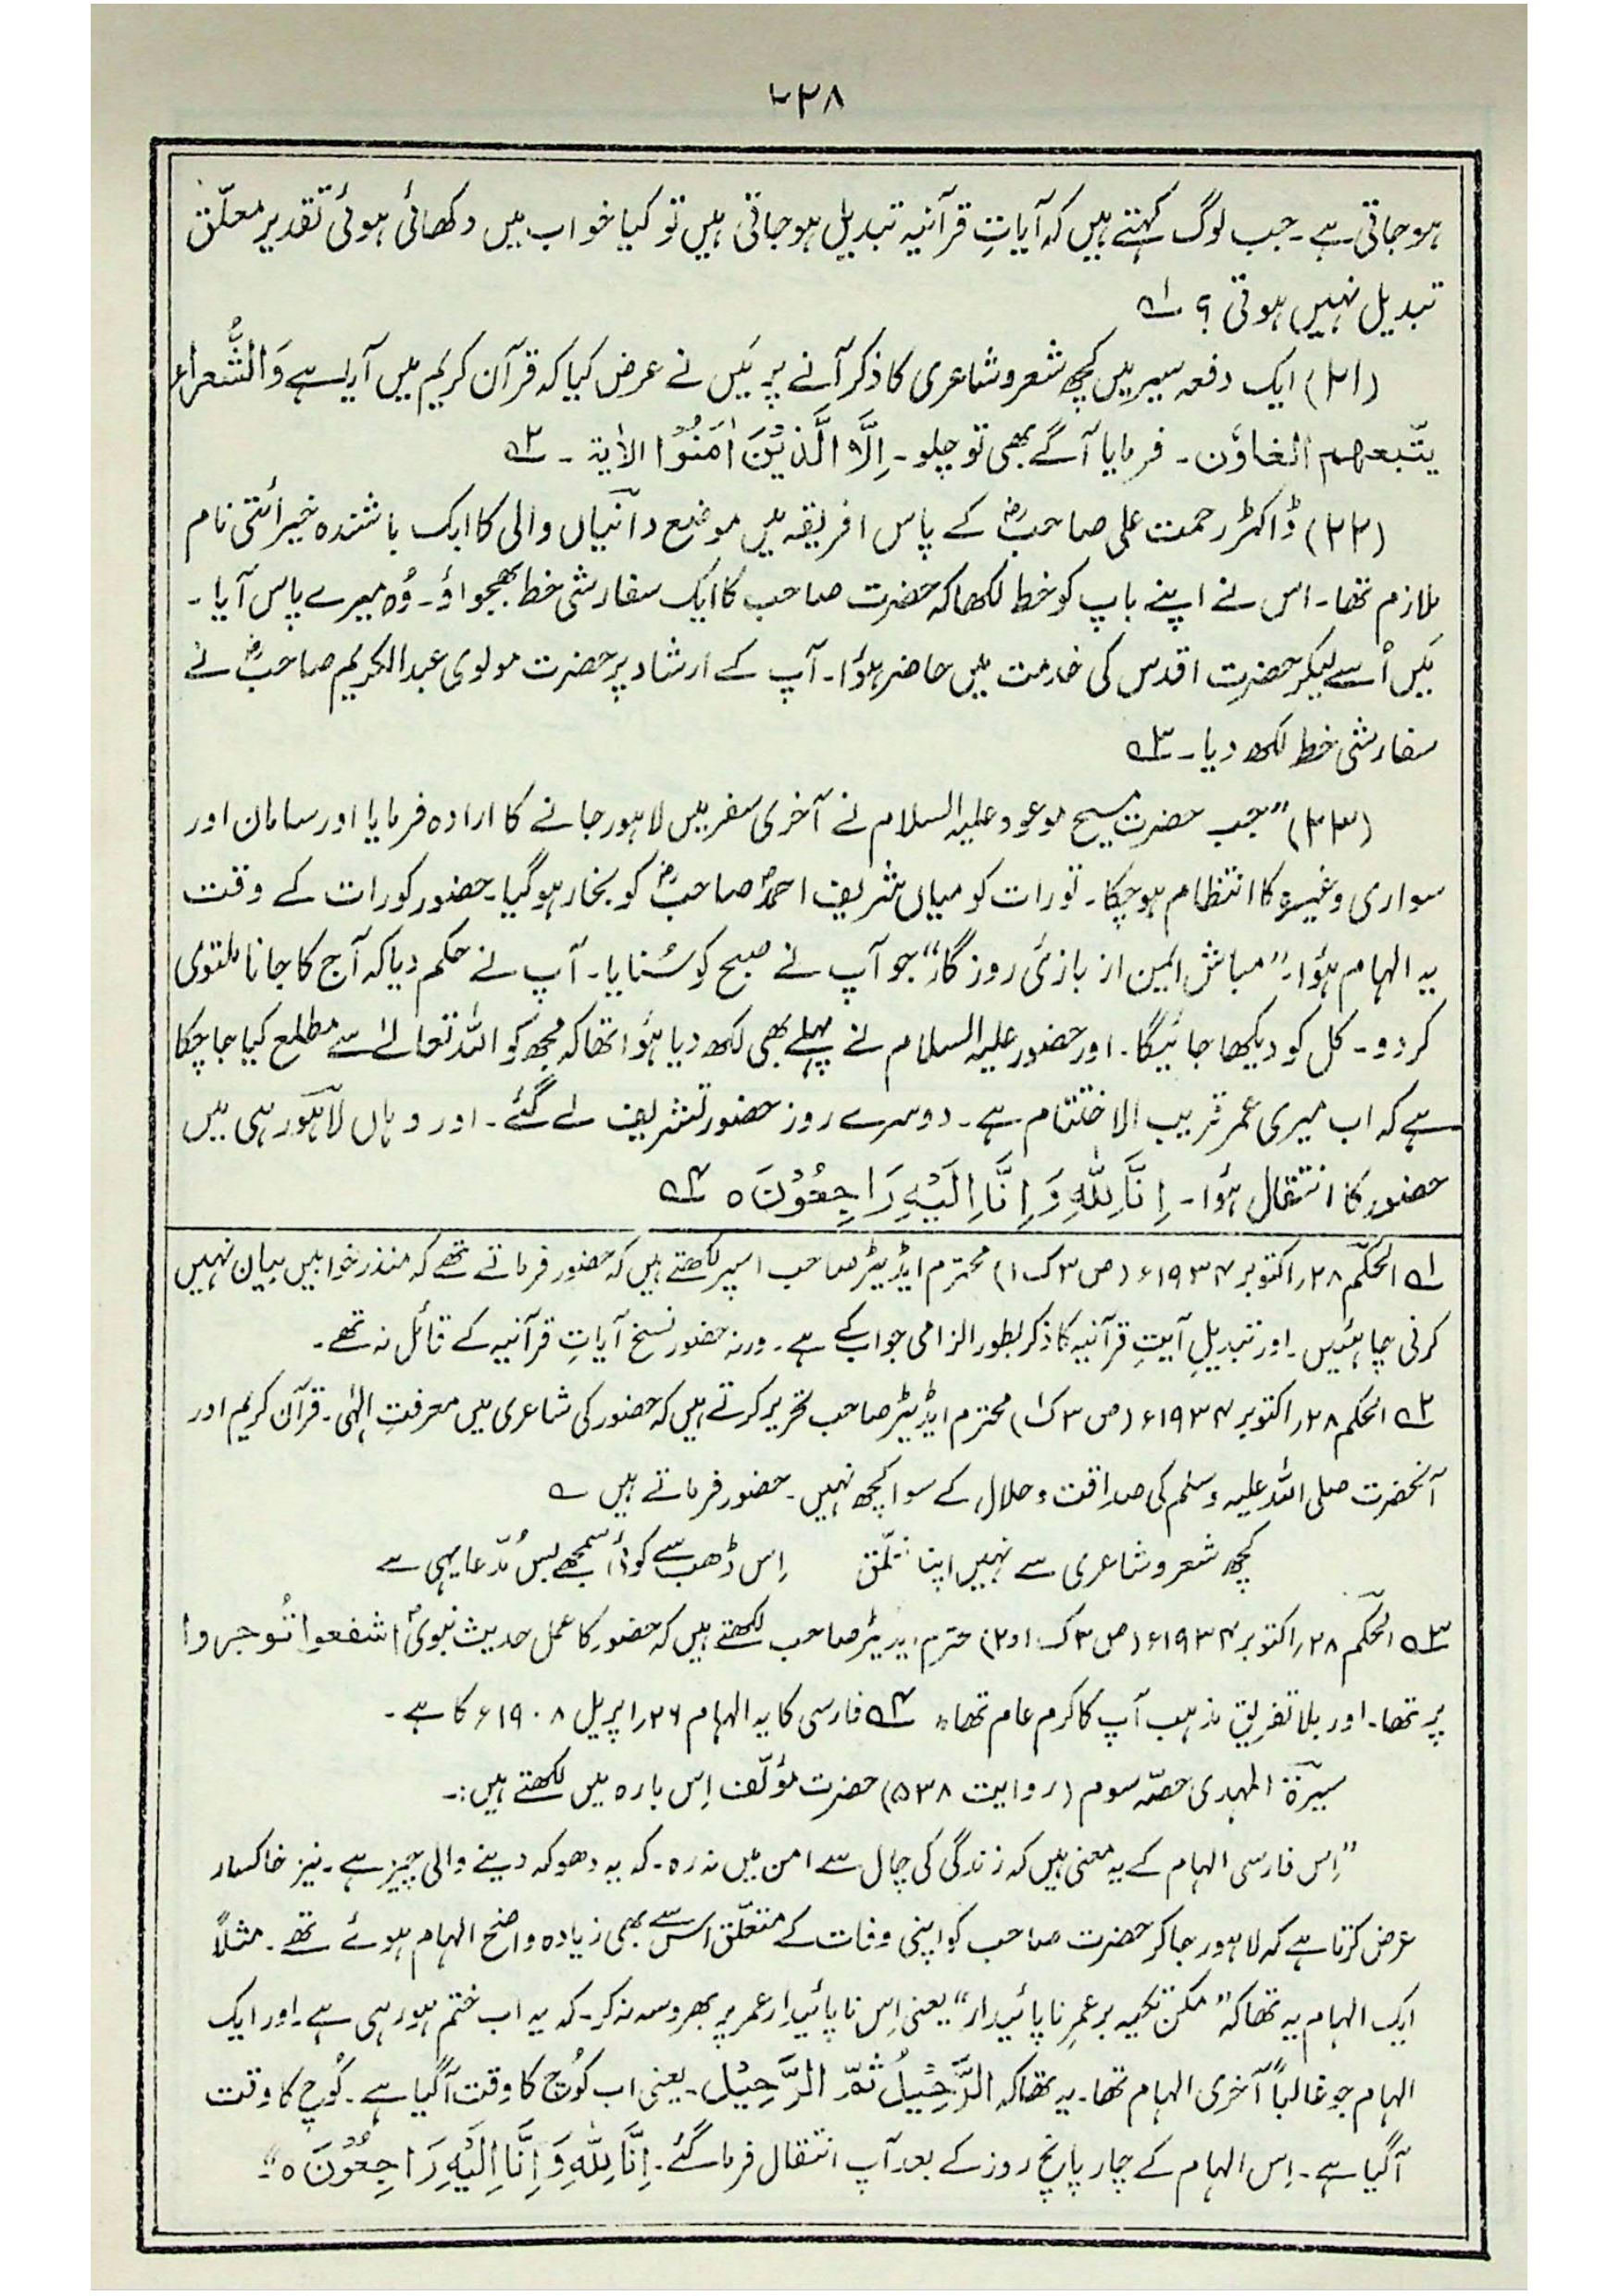 ۲۲۸
ہوجاتی ہے۔ جب لوگ کہتے ہیں کہ آیاتِ قرآنیہ تبدیل ہوجاتی ہیں تو کیا خواب میں دکھائی ہوئی تقدیر معلّق
تبدیل نہیں ہوتی؟ ؎۱
(۲۱) ایک دفعہ سیر میں کچھ شعر و شاعری کا ذکر آنے پر مَیں نے عرض کیا کہ قرآن کریم میں آیا ہے وَالشُّعراءُ
یتّبعھم الغاوٗن۔ فرمایا آگے بھی تو چلو۔ اِلَّا الَّذِیْنَ اٰمَنُوْا الاٰیۃ۔ ؎۲
(۲۲) ڈاکٹر رحمت علی صاحبؓ کے پاس افریقہ میں موضع دانیاں والی کا ایک باشندہ خیرائتی نام
ملازم تھا۔ اس نے اپنے باپ کو خط لکھا کہ حضرت صاحب کا ایک سفارشی خط بھجواؤ۔ وُہ میرے پاس آیا۔
مَیں اُسے لیکر حضرتِ اقدس کی خدمت میں حاضر ہؤا۔ آپ کے ارشاد پر حضرت مولوی عبدالکریم صاحبؓ نے
سفارشی خط لکھ دیا۔ ؎۳
(۲۳) ”جب حضرت مسیح موعود علیہ السلام نے آخری سفر میں لاہور جانے کا ارادہ فرمایا اور سامان اور
سواری وغیرہ کا انتظام ہو چکا۔ تو رات کو میاں شریف احمد صاحبؓ کو بخار ہوگیا۔ حضور کو رات کے وقت
یہ الہام ہؤا۔ ”مباش ایمن از بازئ روزگار“ جو آپ نے صبح کو سُنایا۔ آپ نے حکم دیا کہ آج کا جانا ملتوی
کر دو۔ کل کو دیکھا جائیگا۔ اور حضور علیہ السلام نے پہلے بھی لکھ دیا ہؤا تھا کہ مجھ کو اللہ تعالےٰ سے مطلع کیا جا چکا
ہے کہ اب میری عمر قریب الاختتام ہے۔ دوسرے روز حضور تشریف لے گئے۔ اور وہاں لاہور ہی میں
حضور کا انتقال ہؤا۔ اِنَّا لِلّٰہِ وَ اِنَّا اِلَیْہِ رَاجِعُوْنَ ہ ؎۴
؎۱ الحکم ۲۸؍اکتوبر ۱۹۳۴ء (ص ۳ ک ۱) محترم ایڈیٹر صاحب اسپر لکھتے ہیں کہ حضور فرماتے تھے کہ منذر خوابیں بیان نہیں
کرنی چاہئیں۔ اور تبدیلِ آیتِ قرآنیہ کا ذکر بطور الزامی جواب کے ہے۔ ورنہ حضور نسخ آیاتِ قرآنیہ کے قائل نہ تھے۔
؎۲ الحکم ۲۸؍اکتوبر ۱۹۳۴ء (ص ۳ ک ۱) محترم ایڈیٹر صاحب تحریر کرتے ہیں کہ حضور کی شاعری میں معرفتِ الٰہی۔ قرآن کریم اور
آنحضرت صلی اللہ علیہ وسلم کی صداقت و جلال کے سوا کچھ نہیں۔ حضور فرماتے ہیں ؎
کچھ شعر و شاعری سے نہیں اپنا تعلّق اِس ڈھب سے کوئی سمجھے بس مُدّعا یہی ہے
؎۳ الحکم ۲۸؍اکتوبر ۱۹۳۴ء (ص ۳ ک ۱ و ۲) محترم ایڈیٹر صاحب لکھتے ہیں کہ حضور کا عمل حدیث نبویؐ اشفعوا تُوجروا
پر تھا۔ اور بلا تفریق مذہب آپ کا کرم عام تھا۔ ؎۴ فارسی کا یہ الہام ۲۶؍اپریل ۱۹۰۸ء کا ہے۔
سیرۃ المہدی حصّہ سوم (روایت ۵۳۸) حضرت مؤلّف اِس بارہ میں لکھتے ہیں:۔
”اِس فارسی الہام کے یہ معنی ہیں کہ زندگی کی چال سے امن میں نہ رہ۔ کہ یہ دھوکہ دینے والی چیز ہے۔ نیز خاکسار
عرض کرتا ہے کہ لاہور جا کر حضرت صاحب کو اپنی وفات کے متعلّق اس سے بھی زیادہ واضح الہام ہوئے تھے۔ مثلاً
ایک الہام یہ تھا کہ ”مکن تکیہ بر عمرِ ناپائیدار“ یعنی اِس ناپائیدار عمر پر بھروسہ نہ کر۔ کہ یہ اب ختم ہو رہی ہے۔ اور ایک
الہام جو غالباً آخری الہام تھا۔ یہ تھا کہ الرَّحِیْلُ ثُمَّ الرَّحِیْل۔ یعنی اب کُوچ کا وقت آگیا ہے۔ کُوچ کا وقت
آگیا ہے۔ اِس الہام کے چار پانچ روز کے بعد آپ انتقال فرما گئے۔ اِنَّا لِلّٰہِ وَ اِنَّا اِلَیْہِ رَاجِعُوْنَ ہ“